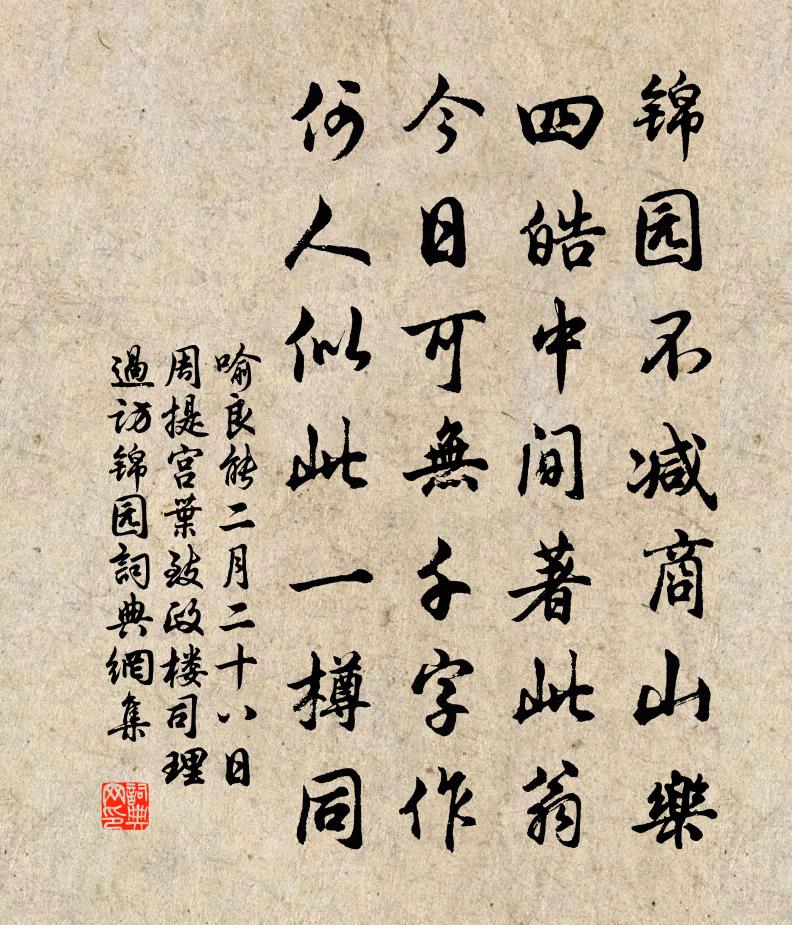 锦园不减商山樂
四皓中间著此翁
今日可無千字作
何人似此一樽同
喻良能二月二十八日
周提宫葉致政楼司理
過访锦园詞典網集
詞典网印